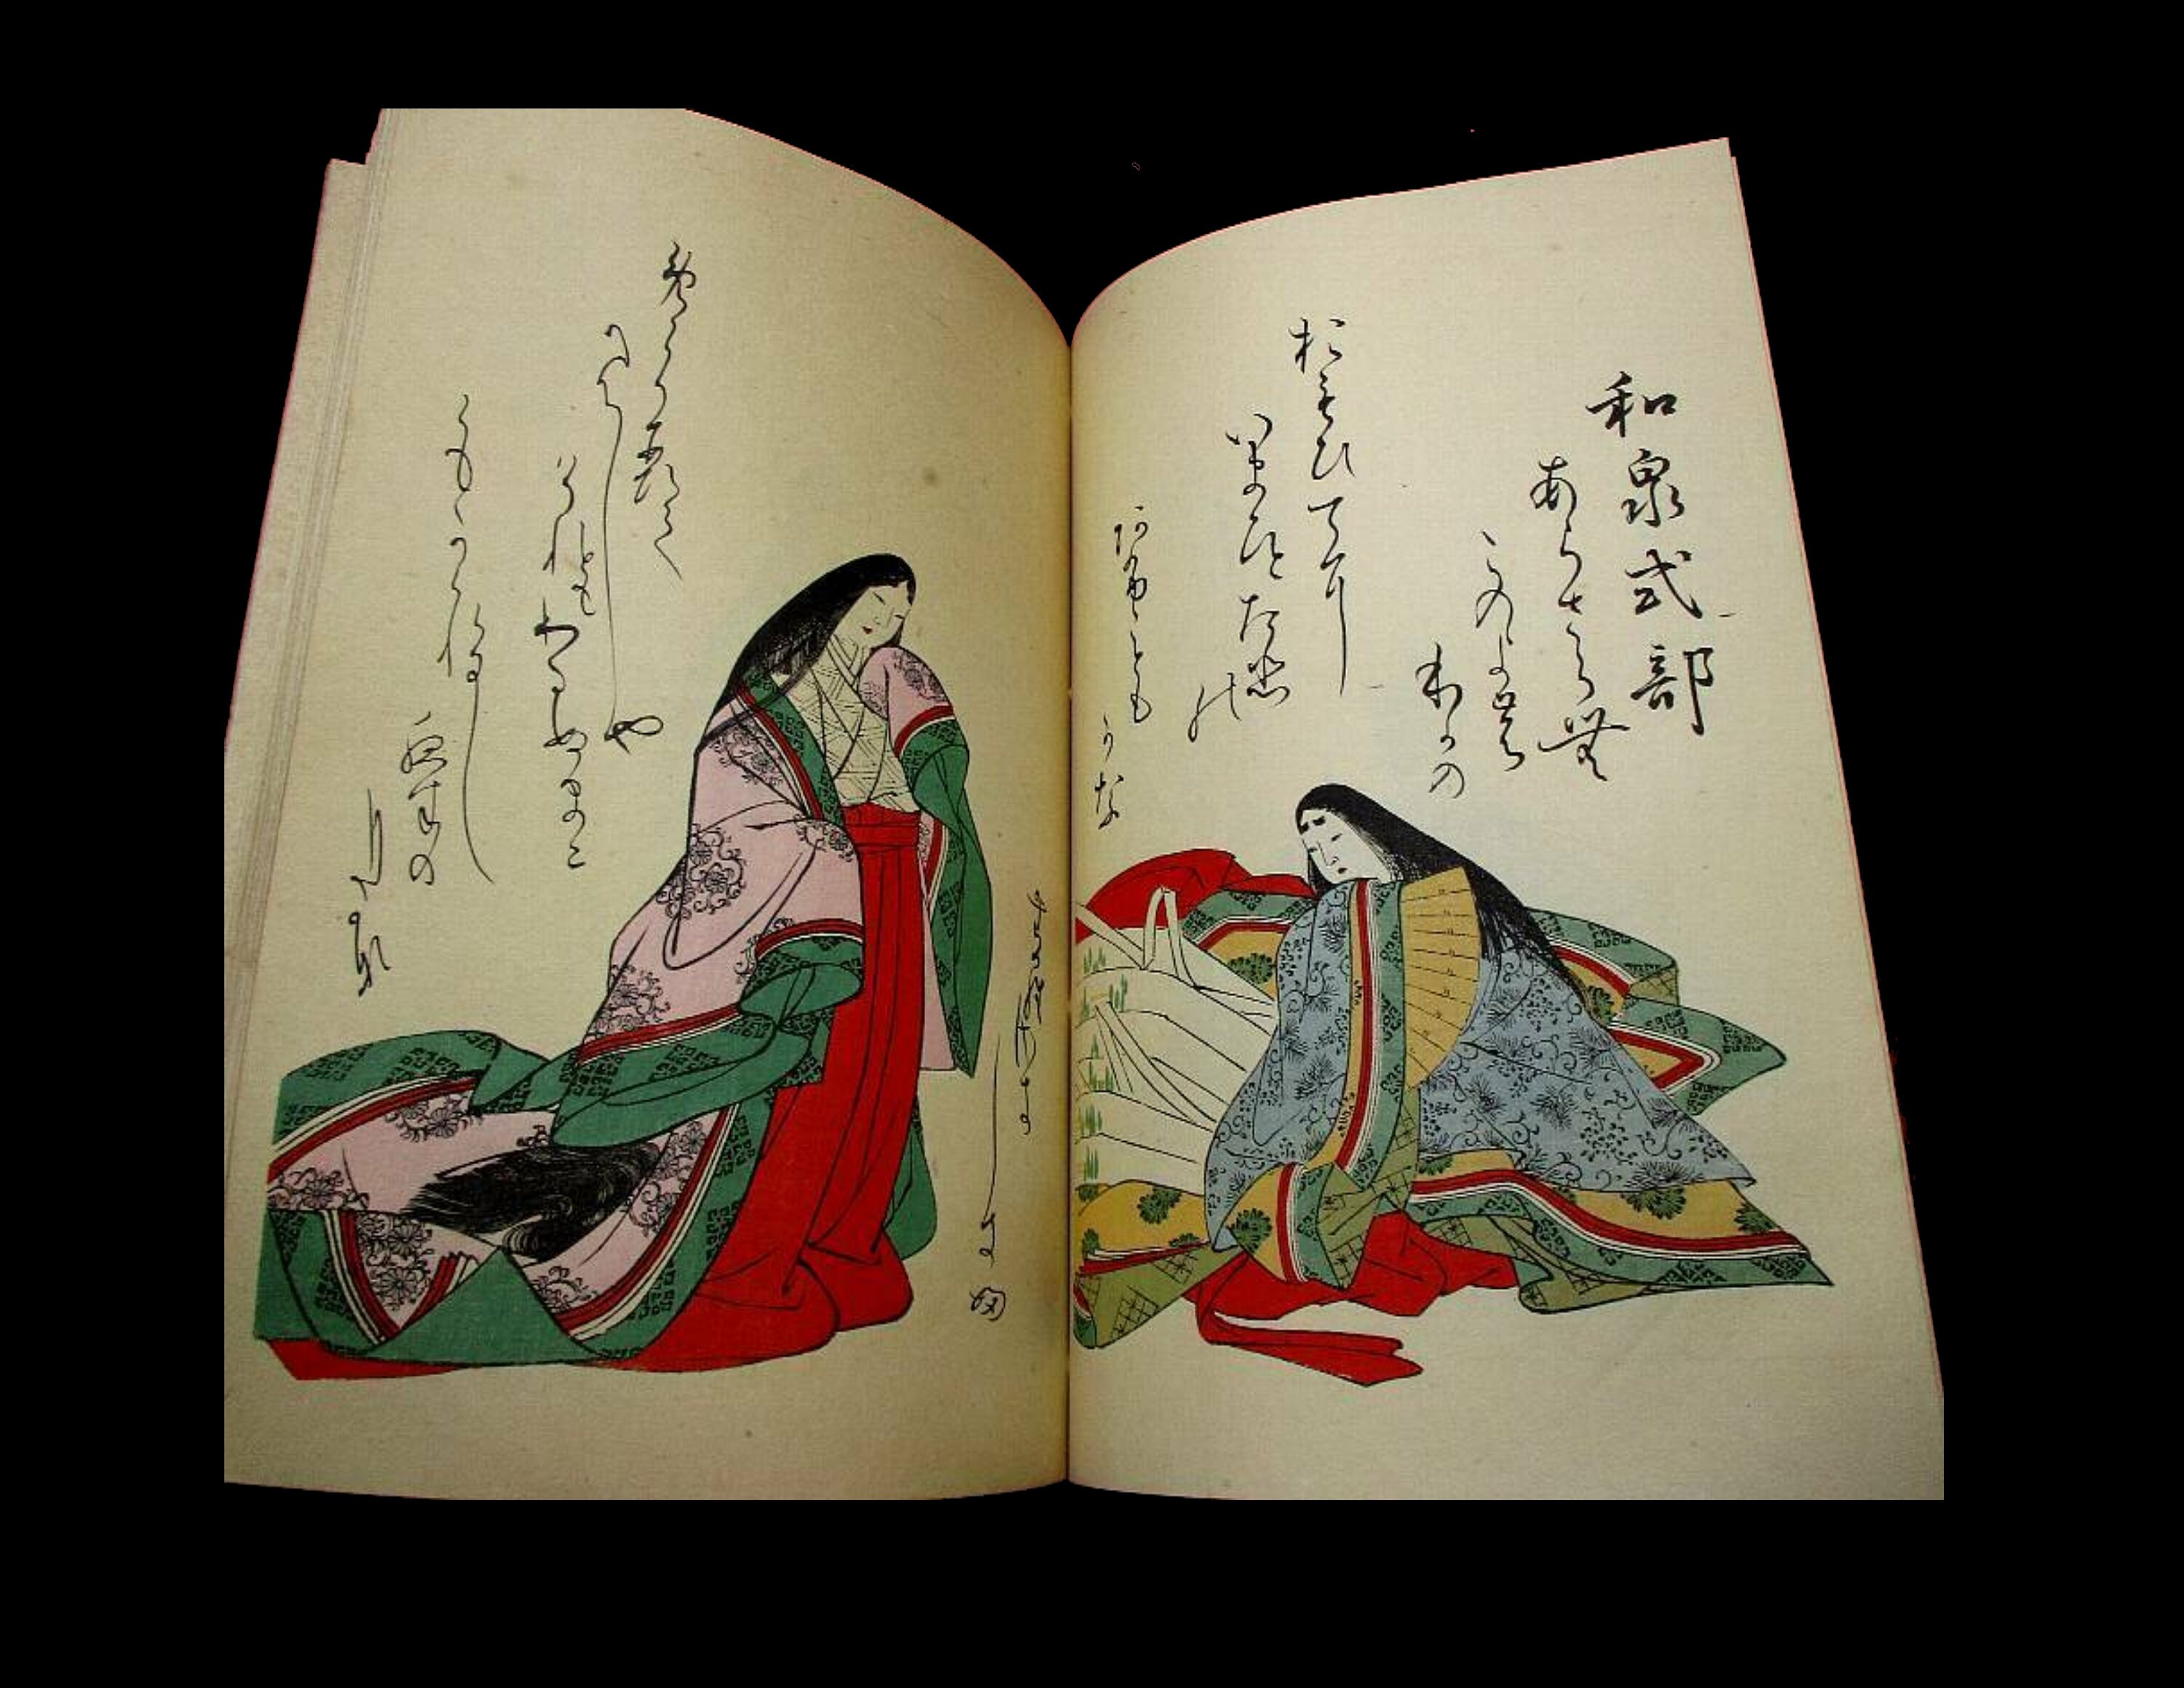 和泉式部
あらさらむ
このよの
ほかの
おもひてに
いまひとたひ
の
あふことも
かな
めくりあひて
みしや
それともわかぬまに
くもかくれにし
夜半の
月かな